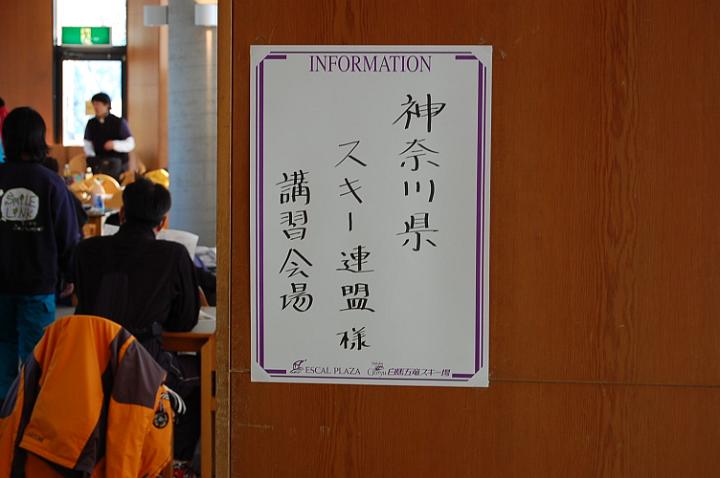 INFORMATION
神奈川県
スキー連盟様
講習会場
ESCAL PLAZA
白馬五竜スキー場
SMILE
LINK